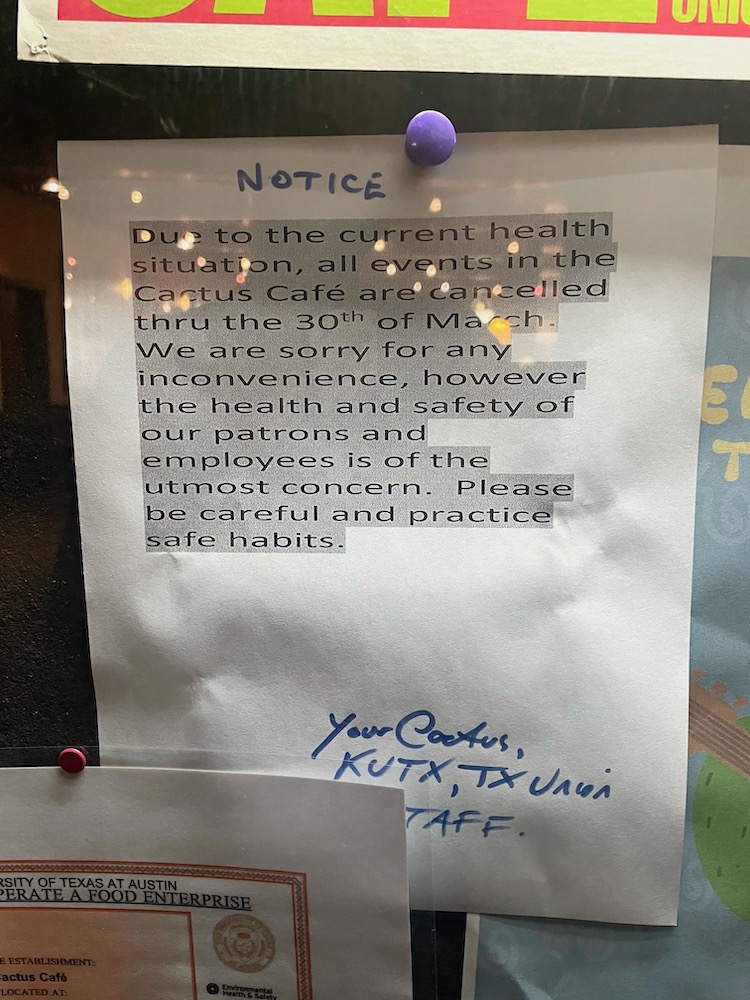 NOTICE
Due to the current health
situation, all events in the
Cactus Café are cancelled
thru the 30th of March.
We are sorry for any
inconvenience, however
the health and safety of
our patrons and
employees is of the
utmost concern.  Please
be careful and practice
safe habits.
Your Cactus,
KUTX, TX Union
TAFF.
RSITY OF TEXAS AT AUSTIN
PERATE A FOOD ENTERPRISE
E ESTABLISHMENT:
actus Café
LOCATED AT:
Environmental
Health & Safety